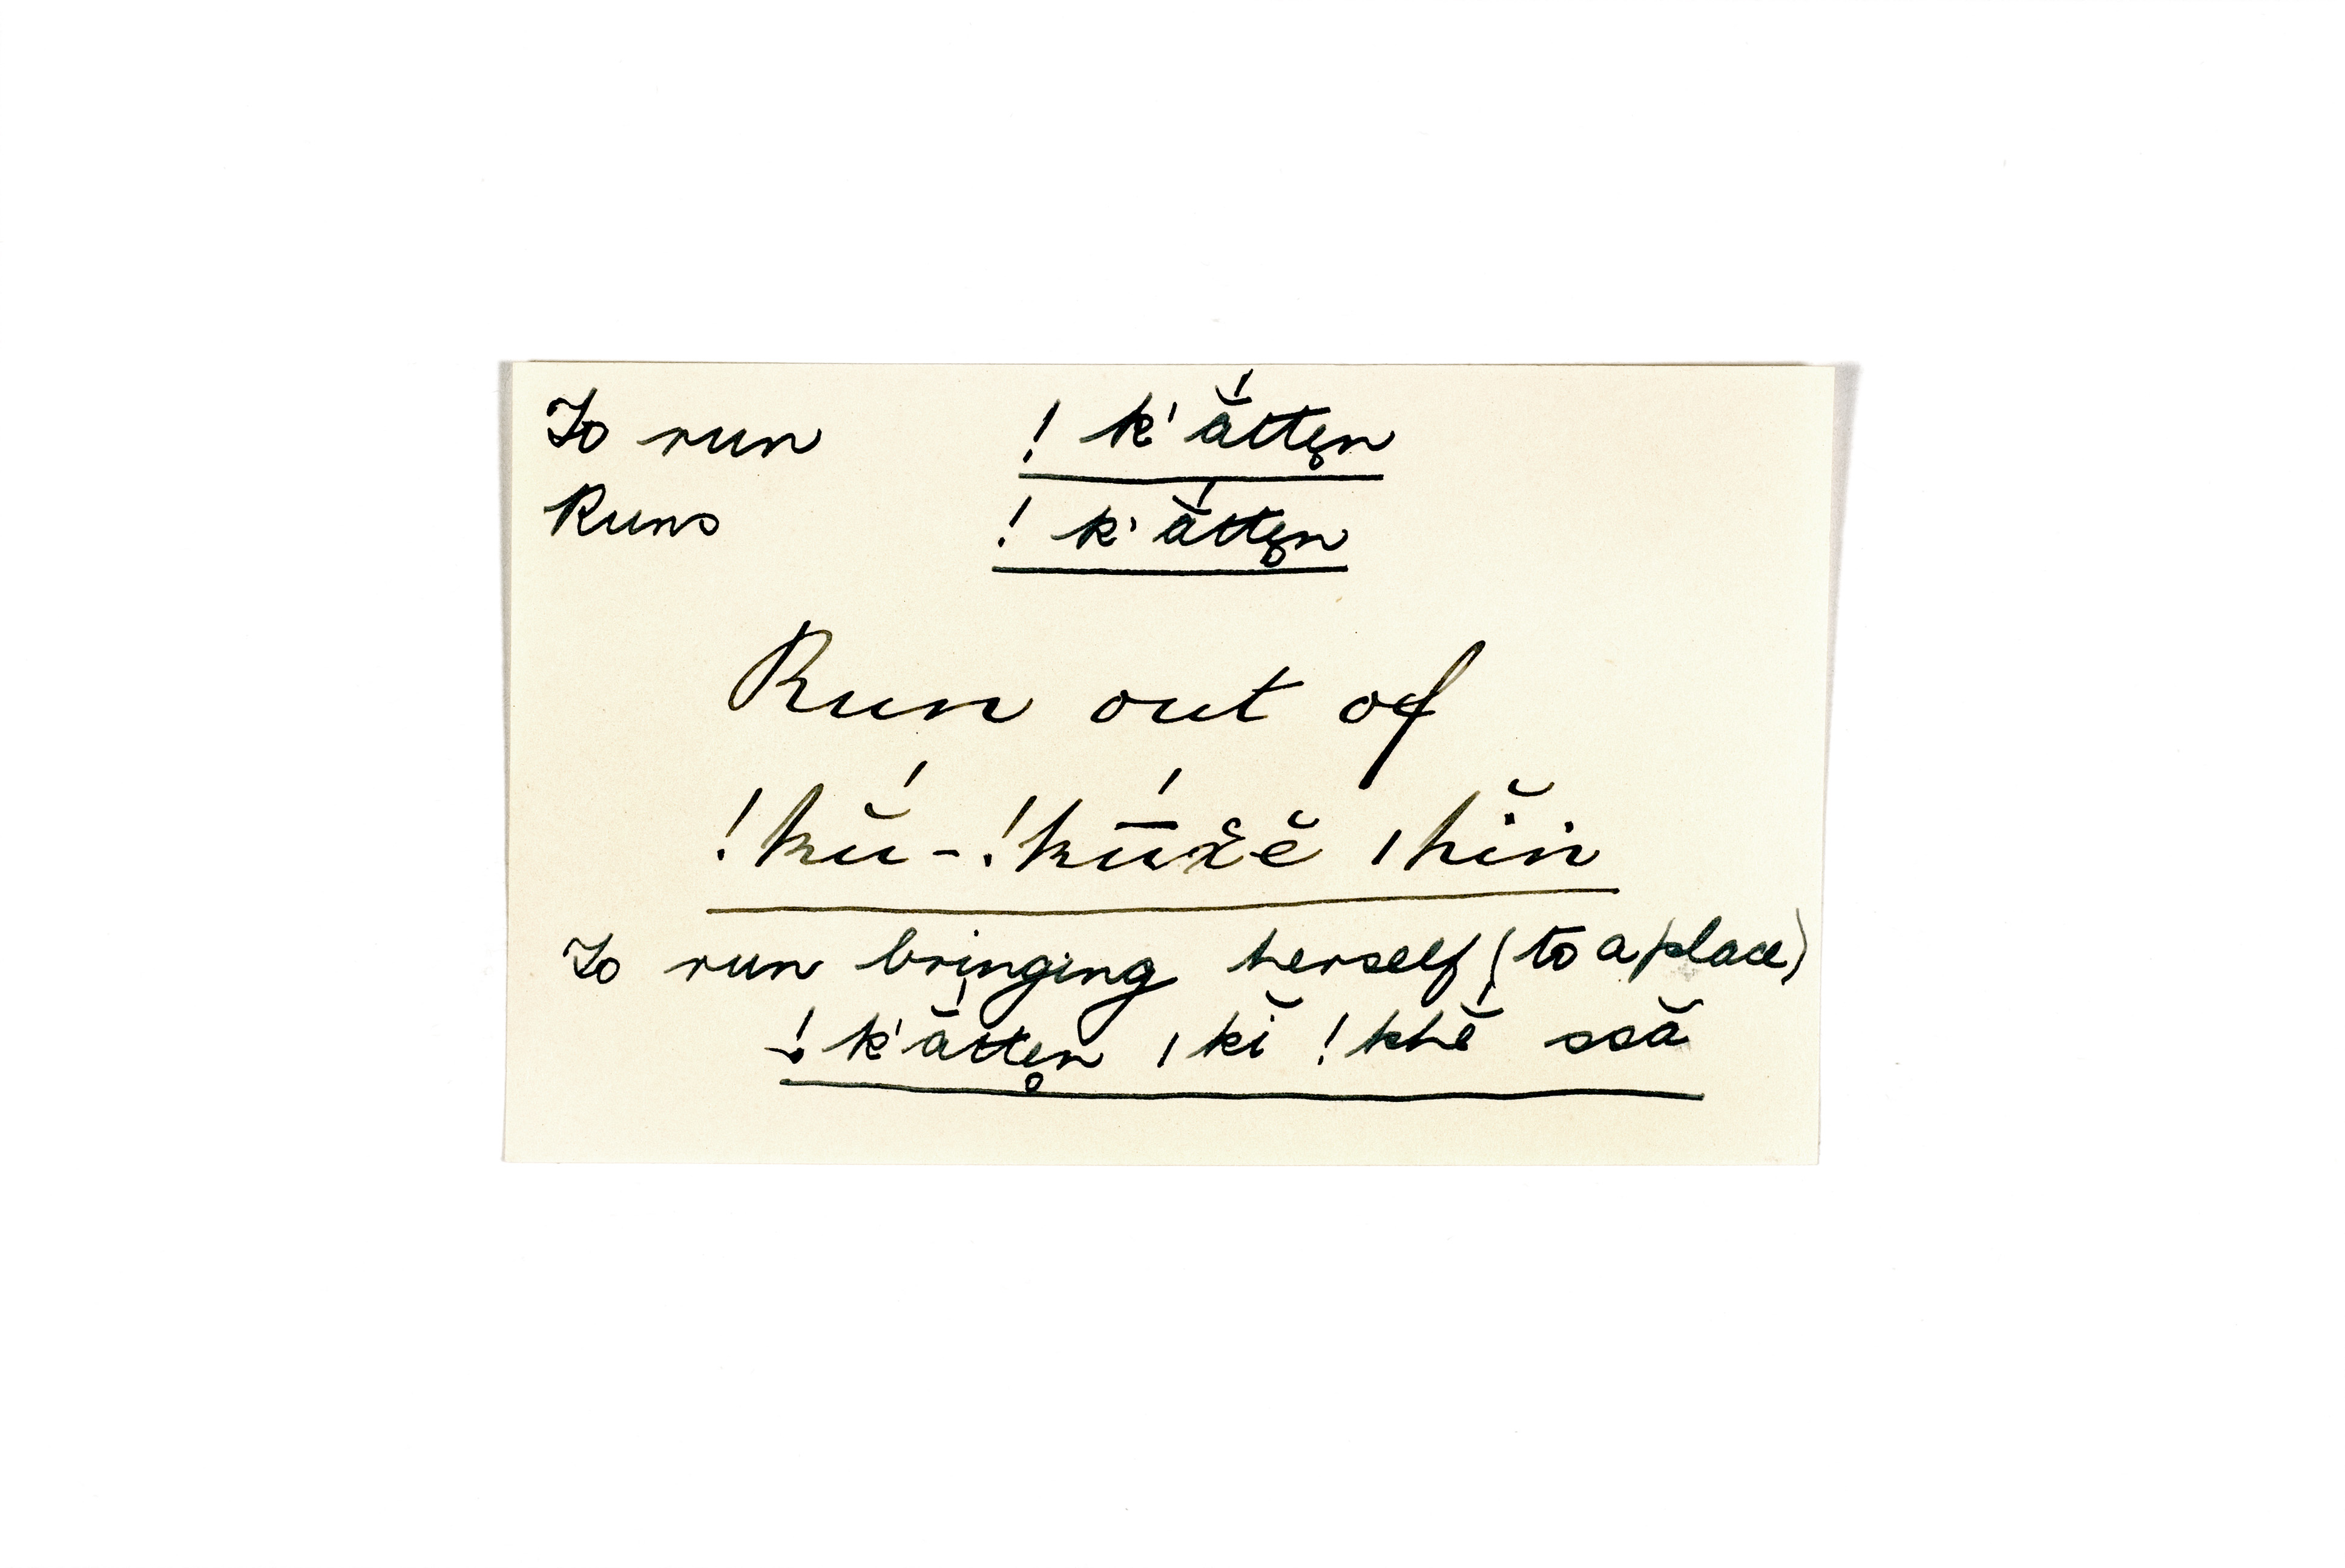 To run ! k'ắtten̥
Runs ! k'ắtten̥
Run out of
!kŭ́-!kū́x̆ĕ ǀhĭn
To run bringing herself (to a place)
!k'ắtten̥ ǀkĭ !khĕ́ ssă